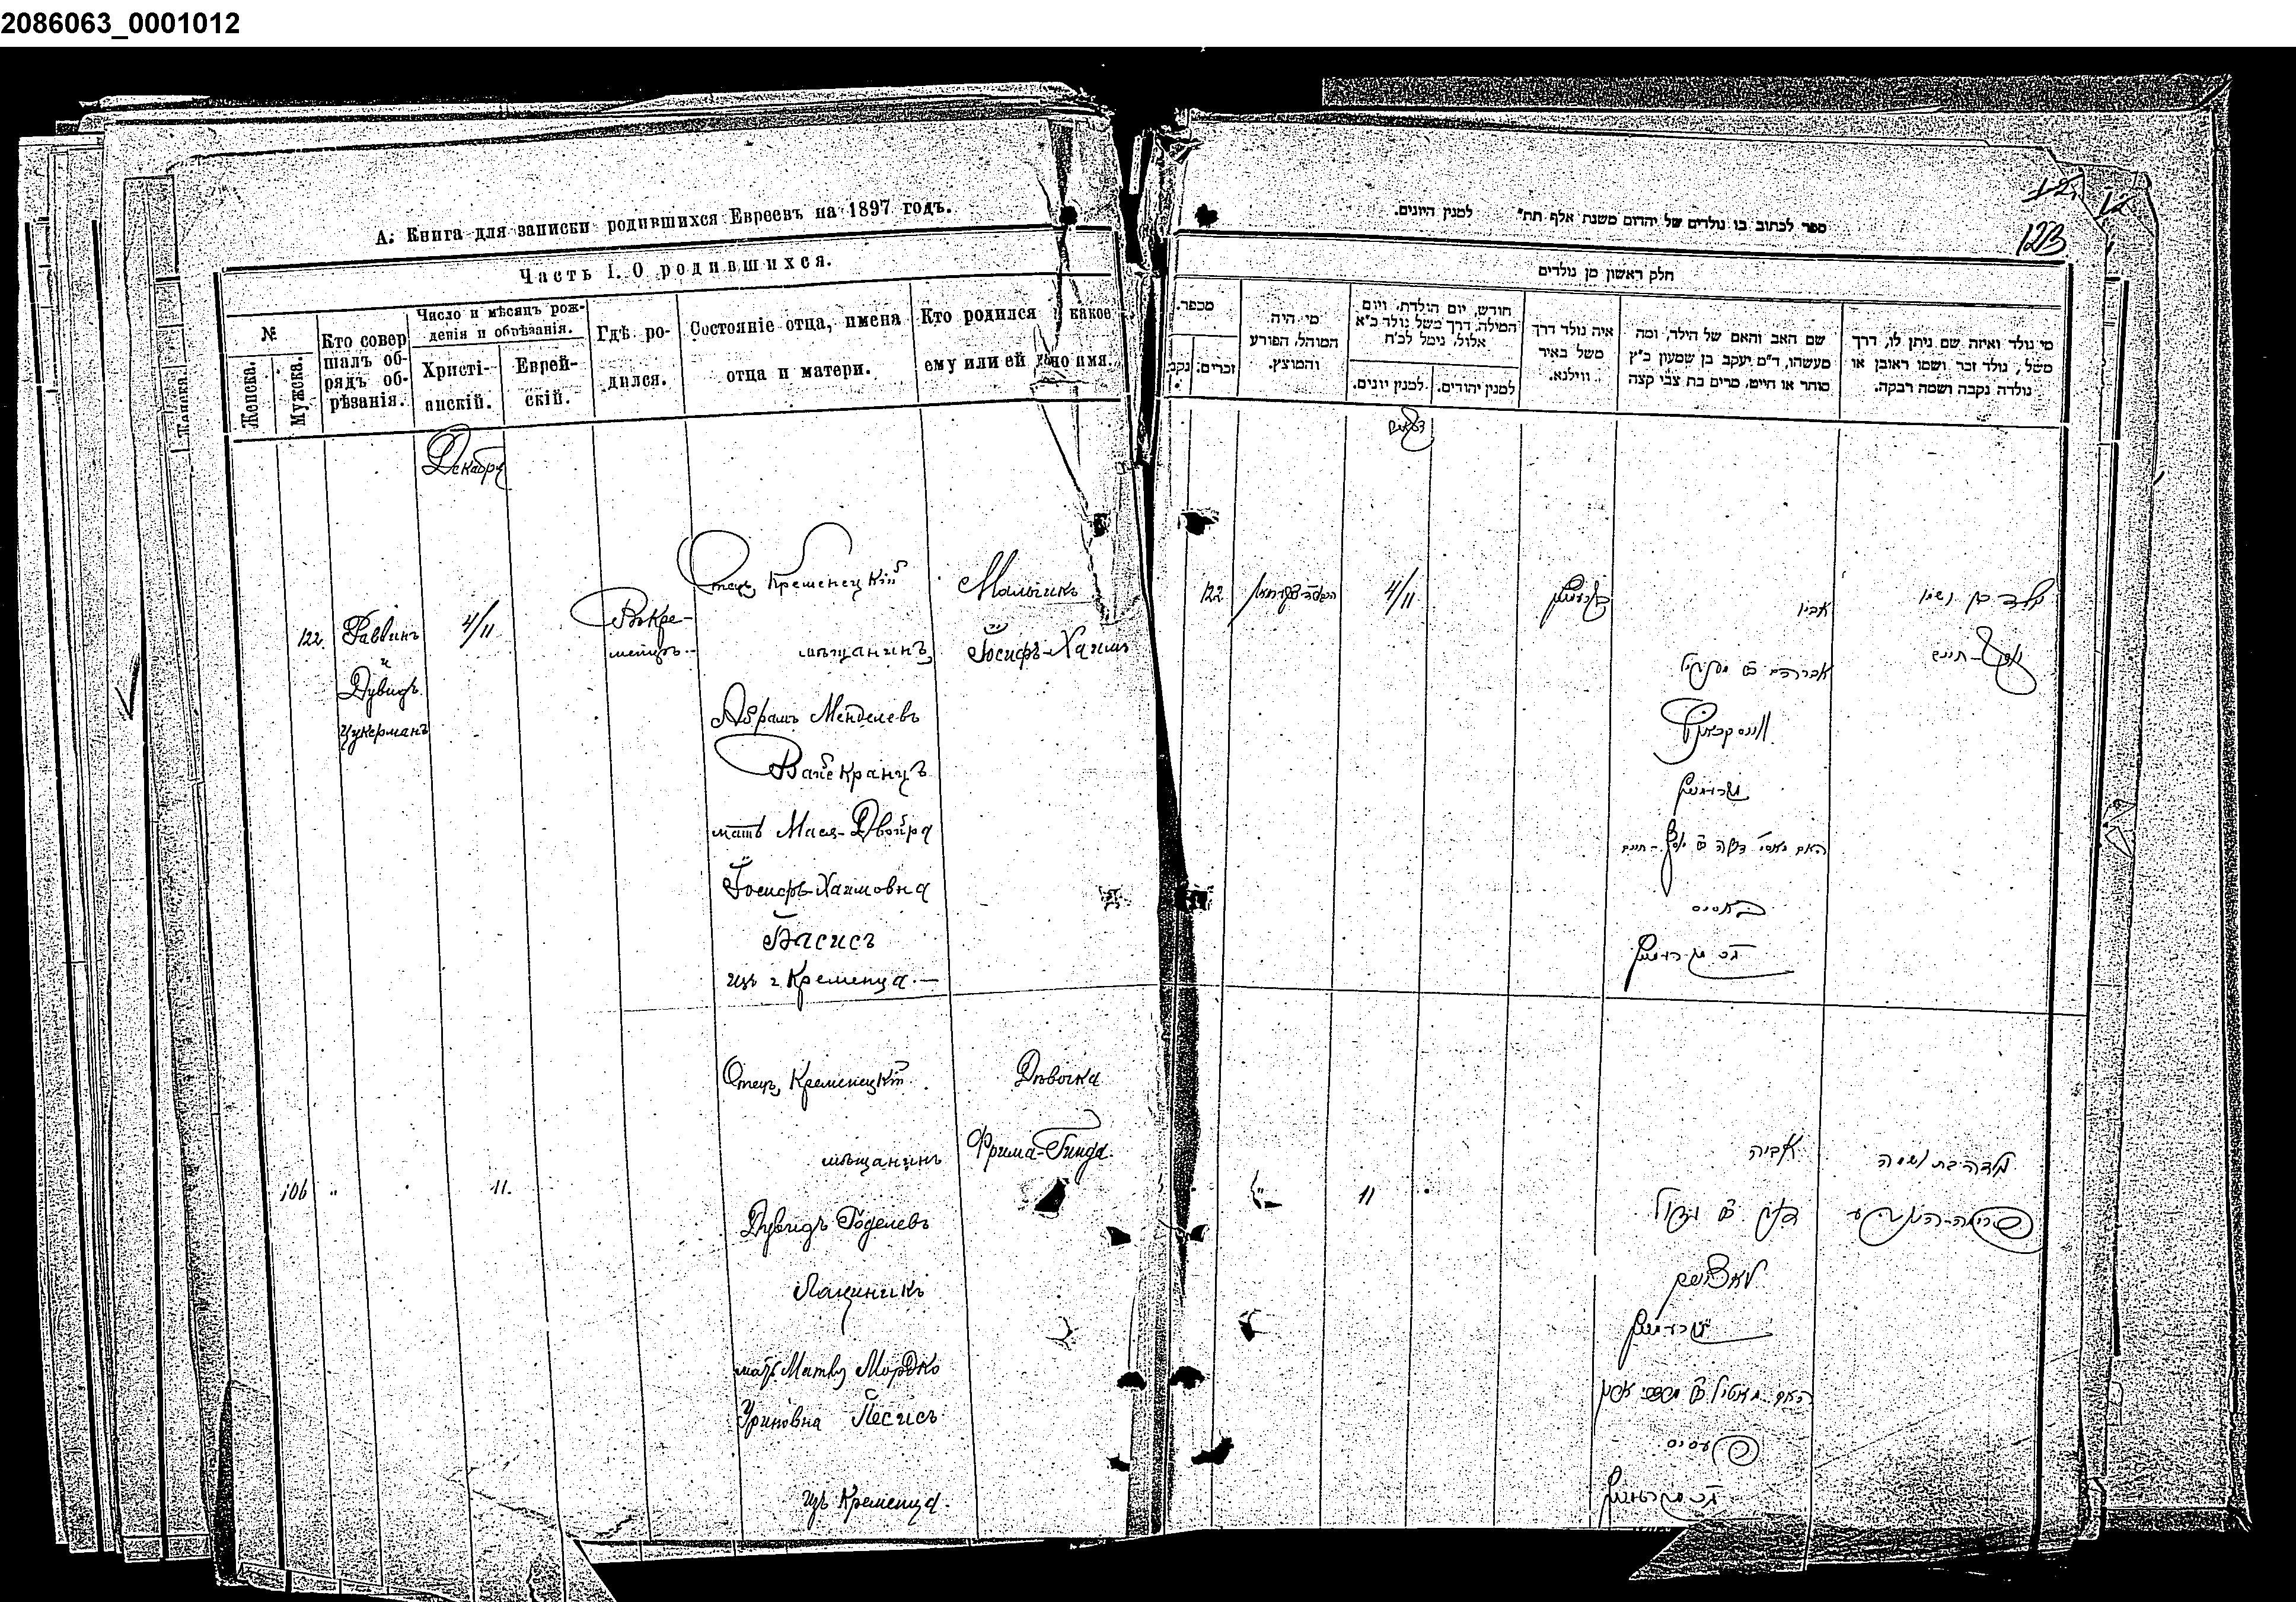 2086063_0001012
А. Книга для записки родившихся Евреевъ на 1897 годъ.
Часть I. О родившихся.
№
Женска.
Мужска.
Кто совер
шалъ об-
рядъ об-
рѣзанія.
Число и мѣсяцъ рож-
денія и обрѣзанія.
Христі-
анскій.
Еврей-
скій.
Гдѣ ро-
дился.
Состояніе отца, имена
отца и матери.
Кто родился и какое
ему или ей дано имя.
Декабря
122.
Раввинъ
и
Дувидъ
Цукерманъ
4/11
Въ Кре-
менцѣ.
Отецъ Кременецкій
мѣщанинъ
Абрамъ Менделевъ
Вайскранцъ
мать Мася-Двойра
Іосифъ-Хаимовна
Басисъ
изъ г. Кременца.
Мальчикъ
Іосифъ-Хаимъ
106
11.
Отецъ Кременецкій
мѣщанинъ
Дувидъ Годелевъ
Лацникъ
мать Матля Мордко
Уриновна Песисъ
изъ Кременца.
Дѣвочка
Фрима-Гинда.
ספר לכתוב בו נולדים של יהדום משנת אלף תת״ למנין היונים.
123
חלק ראשון מן נולדים
מכפר.
זכרים:
נקב.
מי היה
המוהל, הפורע
והמוצץ.
חודש, יום הולדת, ויום
המילה, דרך משל נולד כ״א
אלול, נימל לכ״ח
למנין יונים.
למנין יהודים.
איה נולד דרך
משל באיר
ווילנא.
שם האב והאם של הילד, ומה
מעשהו, ד״מ יעקב בן שמעון כ״ץ
סוחר או חייט, מרים בת צבי קצה
מי נולד ואיזה שם ניתן לו, דרך
משל, נולד זכר ושמו ראובן או
נולדה נקבה ושמה רבקה.
122
4/11
אביו
יוסף-חיים
אברהם
ווייסקראנץ
באסיס
11
אביה
פעסיס